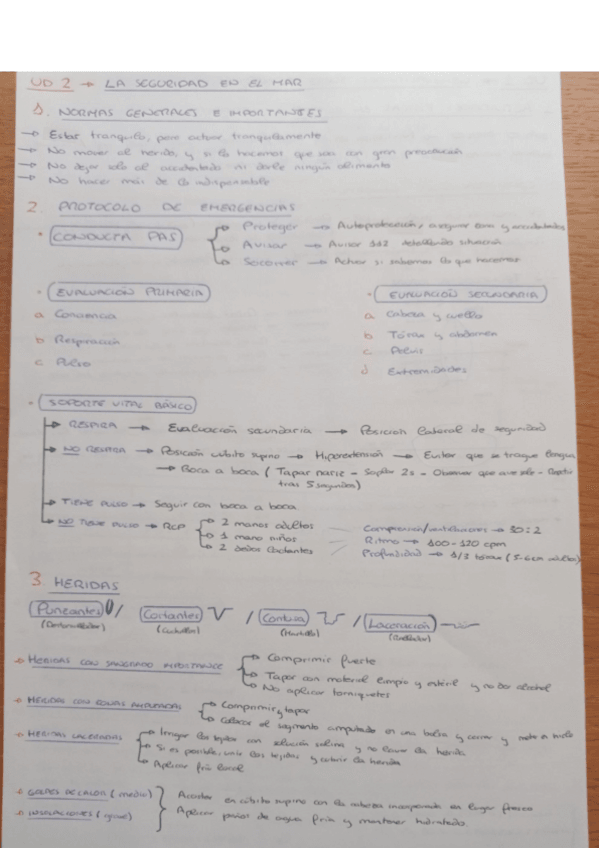 UD 2 → LA SEGURIDAD EN EL MAR
1. NORMAS GENERALES E IMPORTANTES
→ Estar tranquilo, pero actuar tranquilamente
→ No mover al herido, y si lo hacemos que sea con gran precaución
→ No dejar solo al accidentado ni darle ningún alimento
→ No hacer más de lo indispensable
2. PROTOCOLO DE EMERGENCIAS
• CONDUCTA PAS
→ Proteger → Autoprotección, asegurar zona y accidentados
→ Avisar → Avisar 112 detallando situación
→ Socorrer → Actuar si sabemos lo que hacemos
• EVALUACIÓN PRIMARIA
a Conciencia
b Respiración
c Pulso
• EVALUACIÓN SECUNDARIA
a Cabeza y cuello
b Tórax y abdomen
c Pelvis
d Extremidades
• SOPORTE VITAL BÁSICO
→ RESPIRA → Evaluación secundaria → Posición lateral de seguridad
→ NO RESPIRA → Posición cúbito supino → Hiperextensión → Evitar que se trague lengua
→ Boca a boca ( Tapar nariz - Soplar 2s - Observar que aire sale - Repetir
tras 5 segundos)
→ TIENE PULSO → Seguir con boca a boca
→ NO TIENE PULSO → RCP
→ 2 manos adultos
→ 1 mano niños
→ 2 dedos lactantes
Compresión/ventilaciones → 30:2
Ritmo → 100-120 cpm
Profundidad → 1/3 tórax (5-6cm adulto)
3 HERIDAS
Punzantes / Cortantes / Contusa / Laceración
(Destornillador) (Cuchillo) (Martillo)
→ HERIDAS CON SANGRADO IMPORTANTE
→ Comprimir fuerte
→ Tapar con material limpio y estéril y no dar alcohol
→ No aplicar torniquetes
→ HERIDAS CON ZONAS AMPUTADAS
→ Comprimir y tapar
→ Colocar el segmento amputado en una bolsa y cerrar y meter en hielo
→ HERIDAS LACERADAS
→ Limpiar los tejidos con solución salina y no lavar la herida
→ Si es posible, unir los tejidos y cubrir la herida
→ Aplicar frío local
→ GOLPES DE CALOR ( medio)
→ INSOLACIONES ( grave)
Acostar en cúbito supino con la cabeza incorporada en lugar fresco
Aplicar paños de agua fría y mantener hidratado.